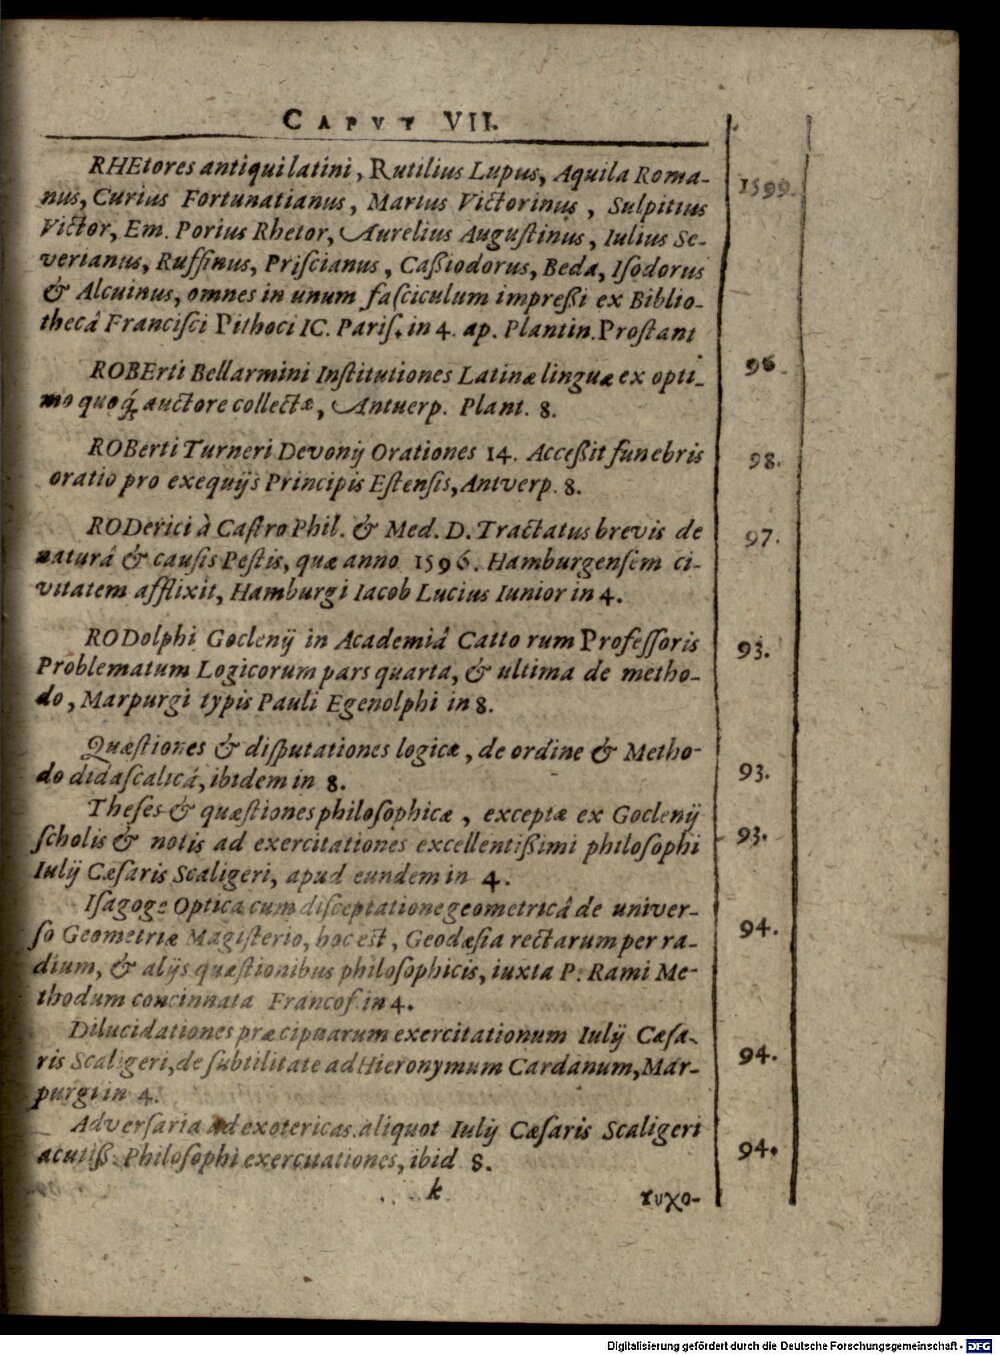 CAPVT VII.
RHEtores antiqui latini, Rutilius Lupus, Aquila Roma- 1599.
nus, Curius Fortunatianus, Marius Victorinus, Sulpitius
Victor, Em. Porius Rhetor, Aurelius Auguſtinus, Iulius Se-
verianus, Ruffinus, Priſcianus, Caßiodorus, Beda, Iſodorus
& Alcuinus, omnes in unum faſciculum impreßi ex Biblio-
thecâ Franciſci Pithoei IC. Pariſ. in 4. ap. Plantin. Proſtant
ROBErti Bellarmini Inſtitutiones Latinæ linguæ ex opti- 96.
mo quoq́; auctore collectæ, Antuerp. Plant. 8.
ROBerti Turneri Devonij Orationes 14. Acceßit funebris 98.
oratio pro exequijs Principis Eſtenſis, Antverp. 8.
RODerici à Caſtro Phil. & Med. D. Tractatus brevis de 97.
naturâ & cauſis Peſtis, quæ anno 1596. Hamburgenſem ci-
vitatem afflixit, Hamburgi Iacob Lucius Iunior in 4.
RODolphi Goclenij in Academiâ Catto rum Profeſſoris 93.
Problematum Logicorum pars quarta, & ultima de metho-
do, Marpurgi typis Pauli Egenolphi in 8.
Quæſtiones & diſputationes logicæ, de ordine & Metho-
do didaſcalicâ, ibidem in 8. 93.
Theſes & quæſtiones philoſophicæ, exceptæ ex Goclenij 93.
ſcholis & notis ad exercitationes excellentißimi philoſophi
Iulij Cæſaris Scaligeri, apud eundem in 4.
Iſagoge Optica cum diſceptatione geometricâ de univer- 94.
ſo Geometriæ Magiſterio, hoc est, Geodæſia rectarum per ra-
dium, & alijs quæſtionibus philoſophicis, iuxta P. Rami Me-
thodum concinnata Francof. in 4.
Dilucidationes præcipuarum exercitationum Iulij Cæſa-
ris Scaligeri, de ſubtilitate ad Hieronymum Cardanum, Mar- 94.
purgi in 4.
Adverſaria ad exotericas aliquot Iulij Cæſaris Scaligeri 94.
acutiß. Philoſophi exercitationes, ibid 8.
k τυχο-
Digitalisierung gefördert durch die Deutsche Forschungsgemeinschaft - DFG